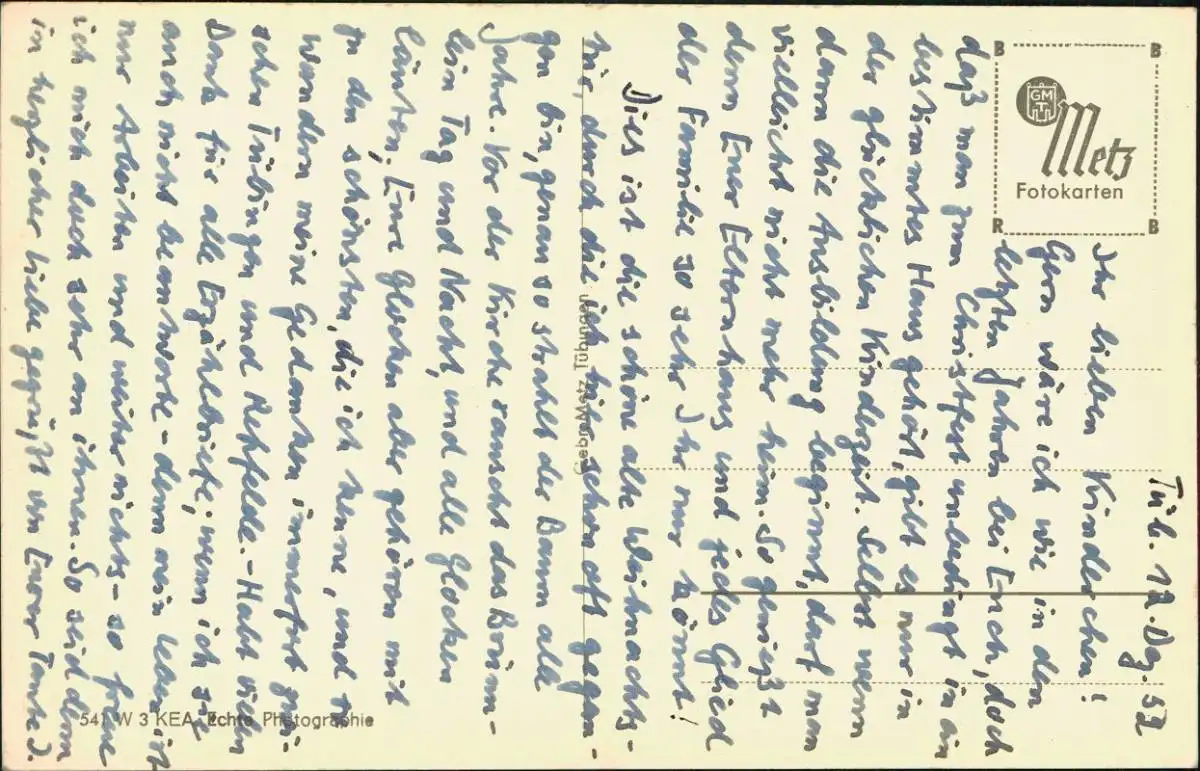 Tüb. 17. Dez. 52
Ihr lieben Kinderchen!
Gern wäre ich wie in den
letzten Jahren bei Euch, doch
daß man zum Christfest unbedingt in ein
bestimmtes Haus gehört, gibt es nur in
der glücklichen Kinderzeit. Selbst wenn
dann die Ausbildung beginnt, darf man
vielleicht nicht mehr heim. So genießt
denn Euer Elternhaus und jedes Glied
der Familie so sehr Ihr nur könnt!
Dies ist die schöne alte Weihnachts-
tür, durch die ich hier schon oft gegan-
gen bin, genau so strahlt der Baum alle
Jahre. Vor der Kirche rauscht das Brünn-
lein Tag und Nacht, und alle Glocken
läuten, Eure Glocken aber gehören mit
zu den schönsten, die ich kenne, und so
wandern meine Gedanken immerfort zwi-
schen Tübingen und Rehfelde.- Habt vielen
Dank für alle Erzählbriefe; wenn ich sie
auch nicht beantworte - denn mein Leben ist
nur Arbeiten und weiter nichts - so freue
ich mich doch sehr an ihnen. So seid denn
in herzlicher Liebe gegrüßt von Eurer Tante J.
B B
R B
GMT
Metz
Fotokarten
Gebr. Metz Tübingen
541 W 3 KEA Echte Photographie